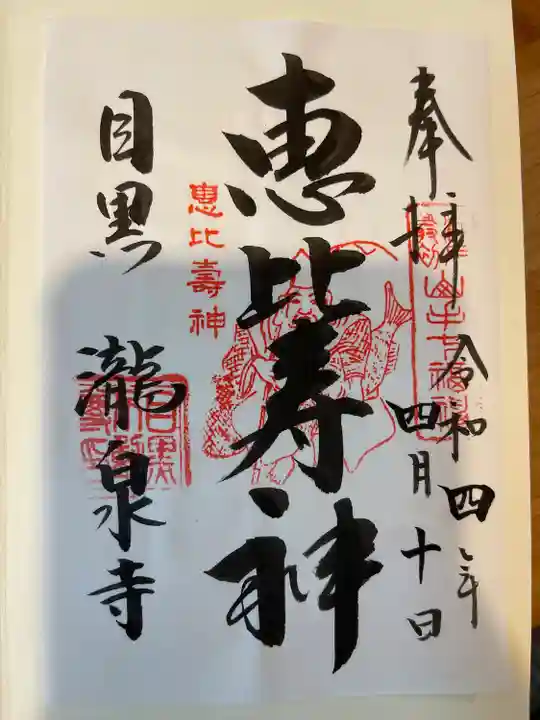 奉拝
令和四年
四月十日
恵比寿神
恵比壽神
目黒
瀧泉寺